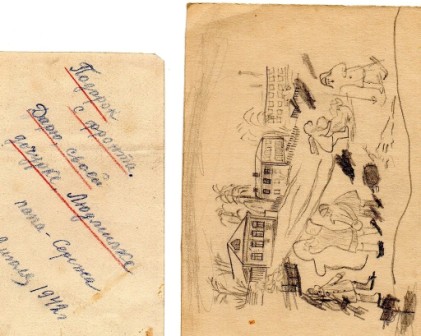 Подарок
с фронта.
Дарю своей
дочурке Людмилке
папа - Сережа
июля 1942г